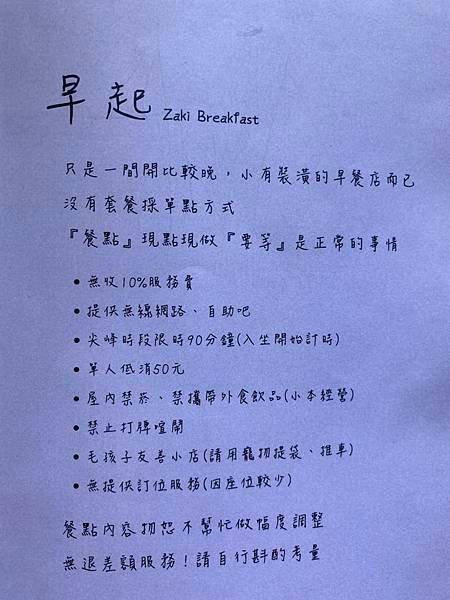 早起 Zaki Breakfast
只是一間開比較晚，小有裝潢的早餐店而已
沒有套餐採單點方式
『餐點』現點現做『要等』是正常的事情
• 無收10%服務費
• 提供無線網路、自助吧
• 尖峰時段限時90分鐘(入坐開始計時)
• 單人低消50元
• 屋內禁菸、禁攜帶外食飲品(小本經營)
• 禁止打牌喧鬧
• 毛孩子友善小店(請用寵物提袋、推車)
• 無提供訂位服務(因座位較少)
餐點內容物恕不幫忙做幅度調整
無退差額服務！請自行斟酌考量